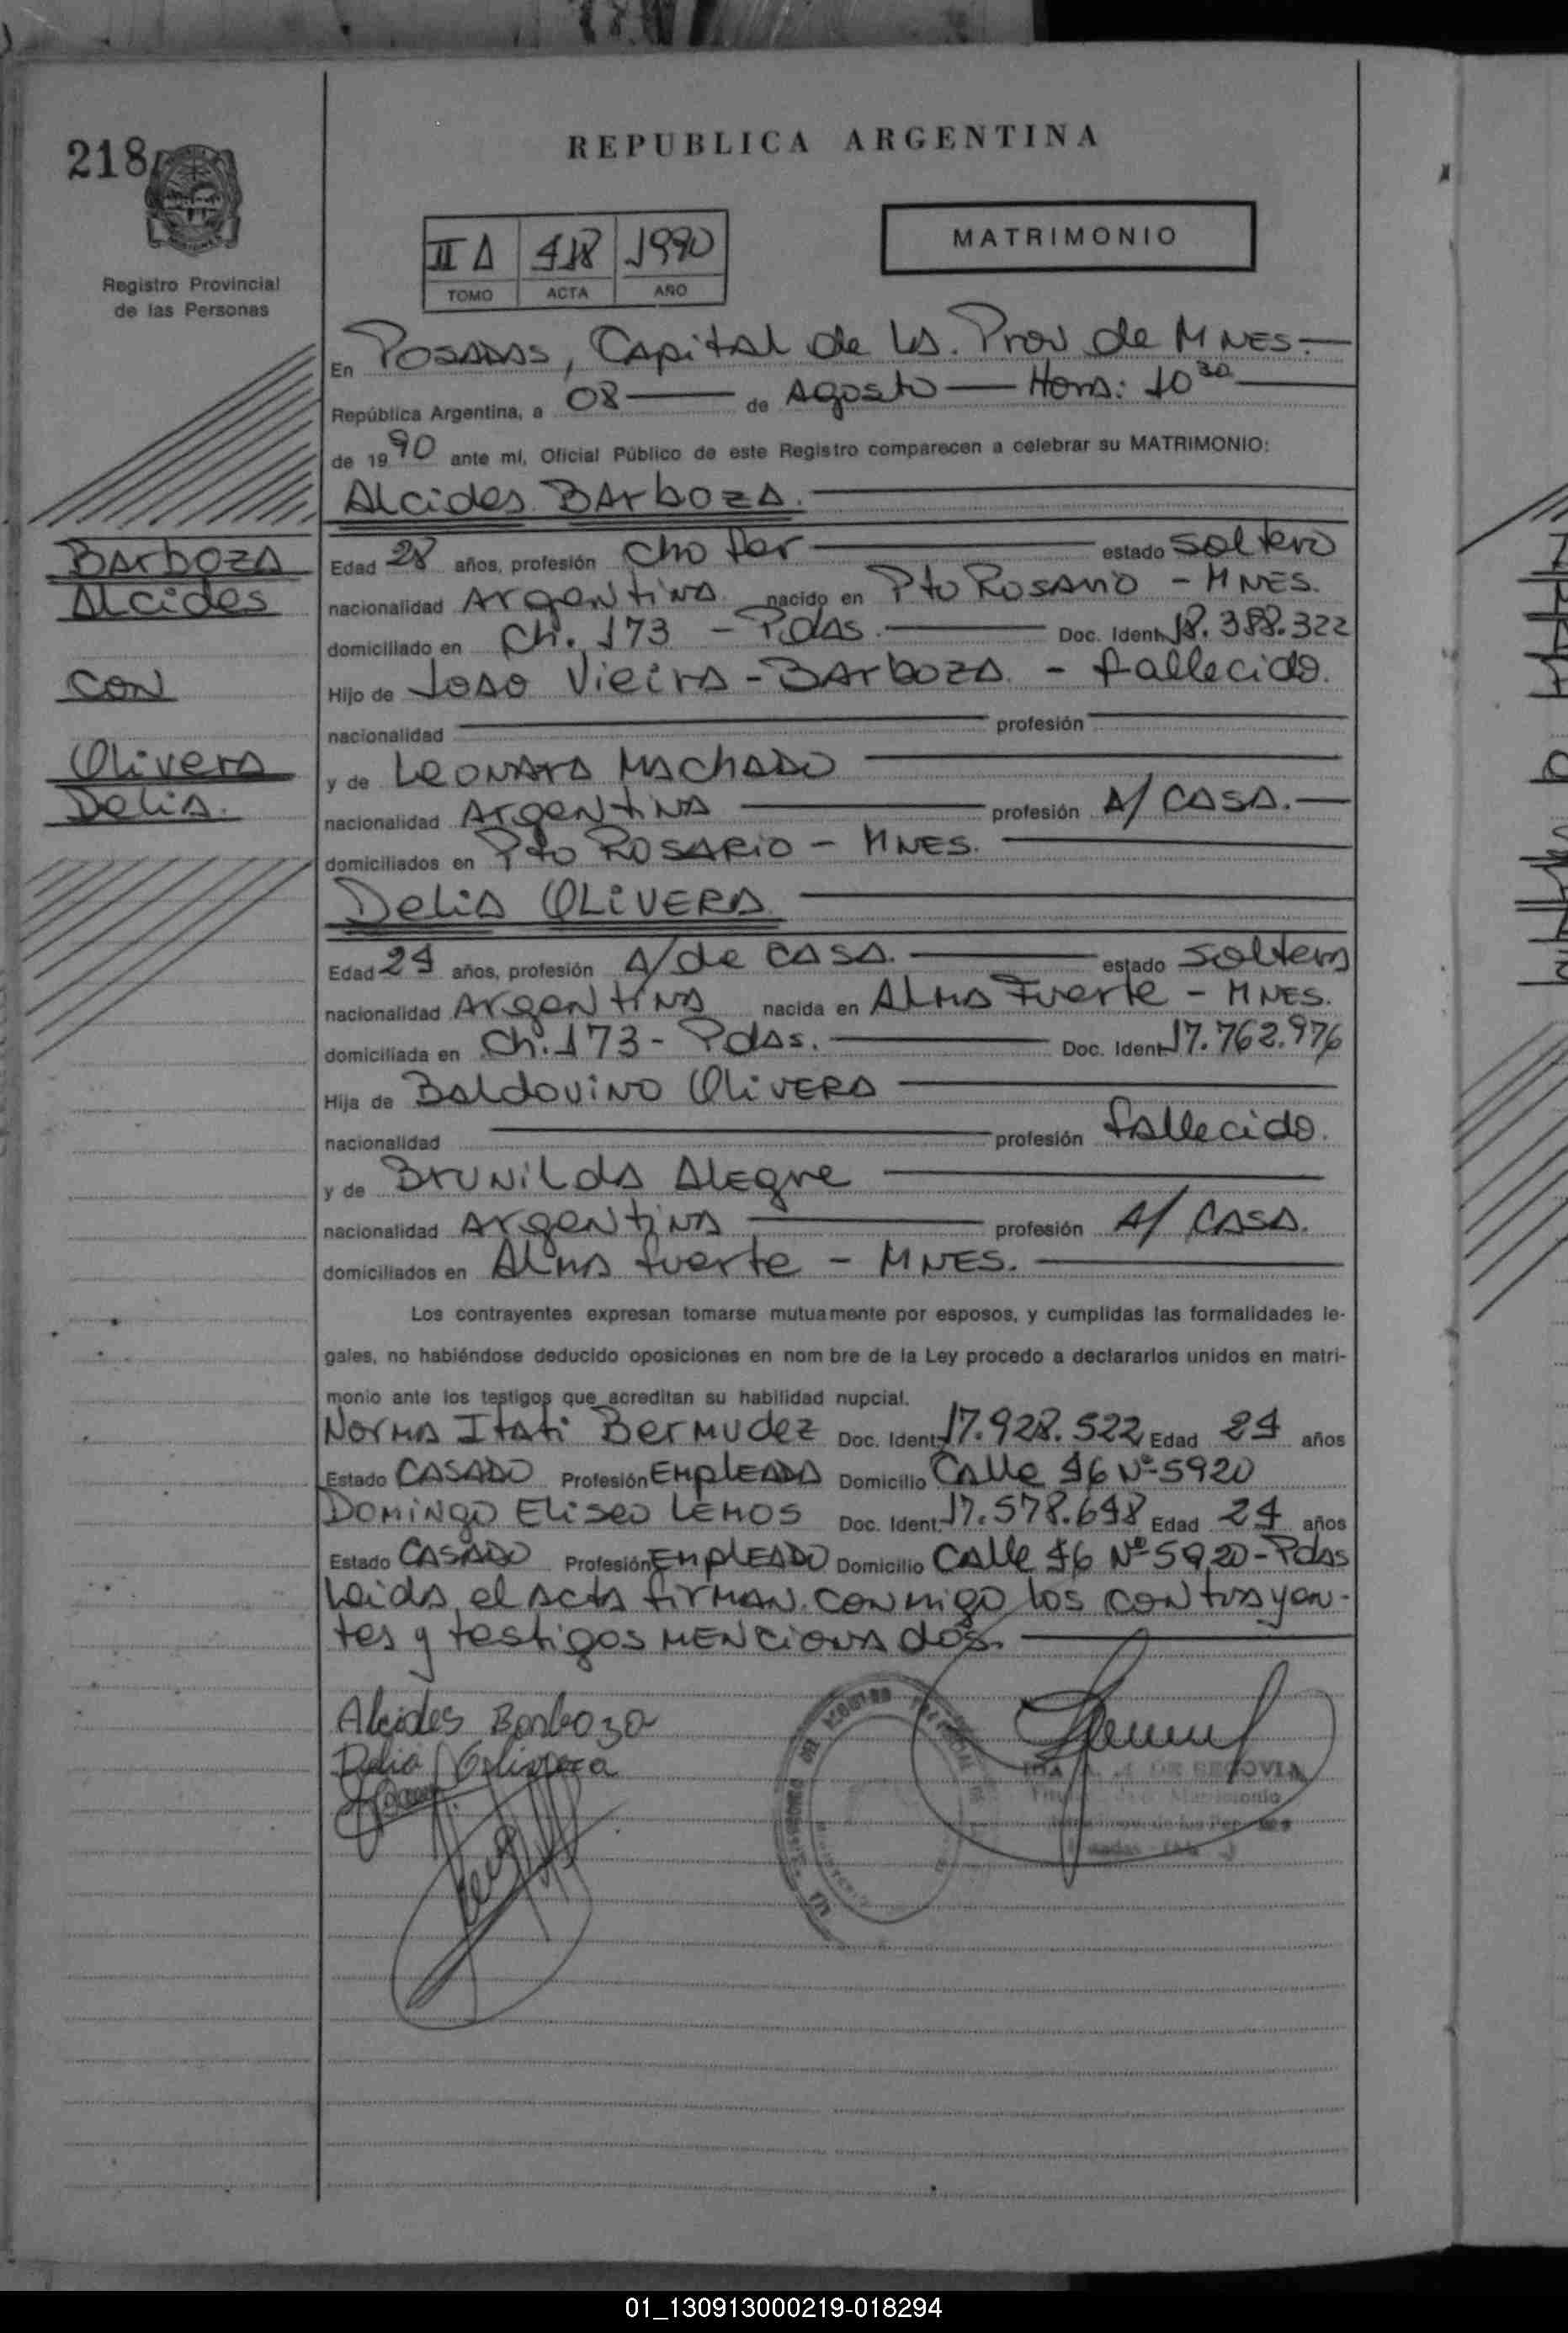 218
REPUBLICA ARGENTINA
MATRIMONIO
Registro Provincial
de las Personas
II A 418 1990
TOMO ACTA AÑO
En POSADAS, CApitAl de LA. Prov de MNES.-
República Argentina, a 08 de Agosto Hora: 10 30
de 1990 ante mí, Oficial Público de este Registro comparecen a celebrar su MATRIMONIO:
Alcides BArbozA.
BArbozA
Alcides
con
OliverA
DeliA.
Edad 28 años, profesión Chofer estado Soltero
nacionalidad ArgentinA nacido en Pto Rosario - MNES.
domiciliado en Ch. 173 - Pdas. Doc. Ident. 18.388.322
Hijo de Joao VieirA - BArbozA. - fallecido.
nacionalidad profesión
y de LeonarA MAchADO
nacionalidad ArgentinA profesión A/ CASA.
domiciliados en Pto ROSARIO - MNES.
DeliA OLIVERA
Edad 24 años, profesión A/de CASA. estado SolterA
nacionalidad ArgentinA nacida en AlmA Fuerte - MNES.
domiciliada en Ch. 173 - Pdas. Doc. Ident. 17.762.976
Hija de BAldovino OliVERA
nacionalidad profesión fallecido.
y de BruNildA Alegre
nacionalidad ArgentinA profesión A/ CASA.
domiciliados en AlmA fuerte - MNES.
Los contrayentes expresan tomarse mutuamente por esposos, y cumplidas las formalidades le-
gales, no habiéndose deducido oposiciones en nom bre de la Ley procedo a declararlos unidos en matri-
monio ante los testigos que acreditan su habilidad nupcial.
NormA Itati BerMudez Doc. Ident. 17.928.522 Edad 24 años
Estado CASADO Profesión EMpleADA Domicilio CAlle 46 Nº 5920
DOMINGO Eliseo LEMOS Doc. Ident. 17.578.648 Edad 24 años
Estado CASADO Profesión EMpleADO Domicilio CAlle 46 Nº 5920 - Pdas
LeidA el ActA firMAN conmigo los contrAyen-
tes y testigos MENCionAdos.
Alcides Barboza
Delia Olivera
DE SEGOVIA
01_130913000219-018294